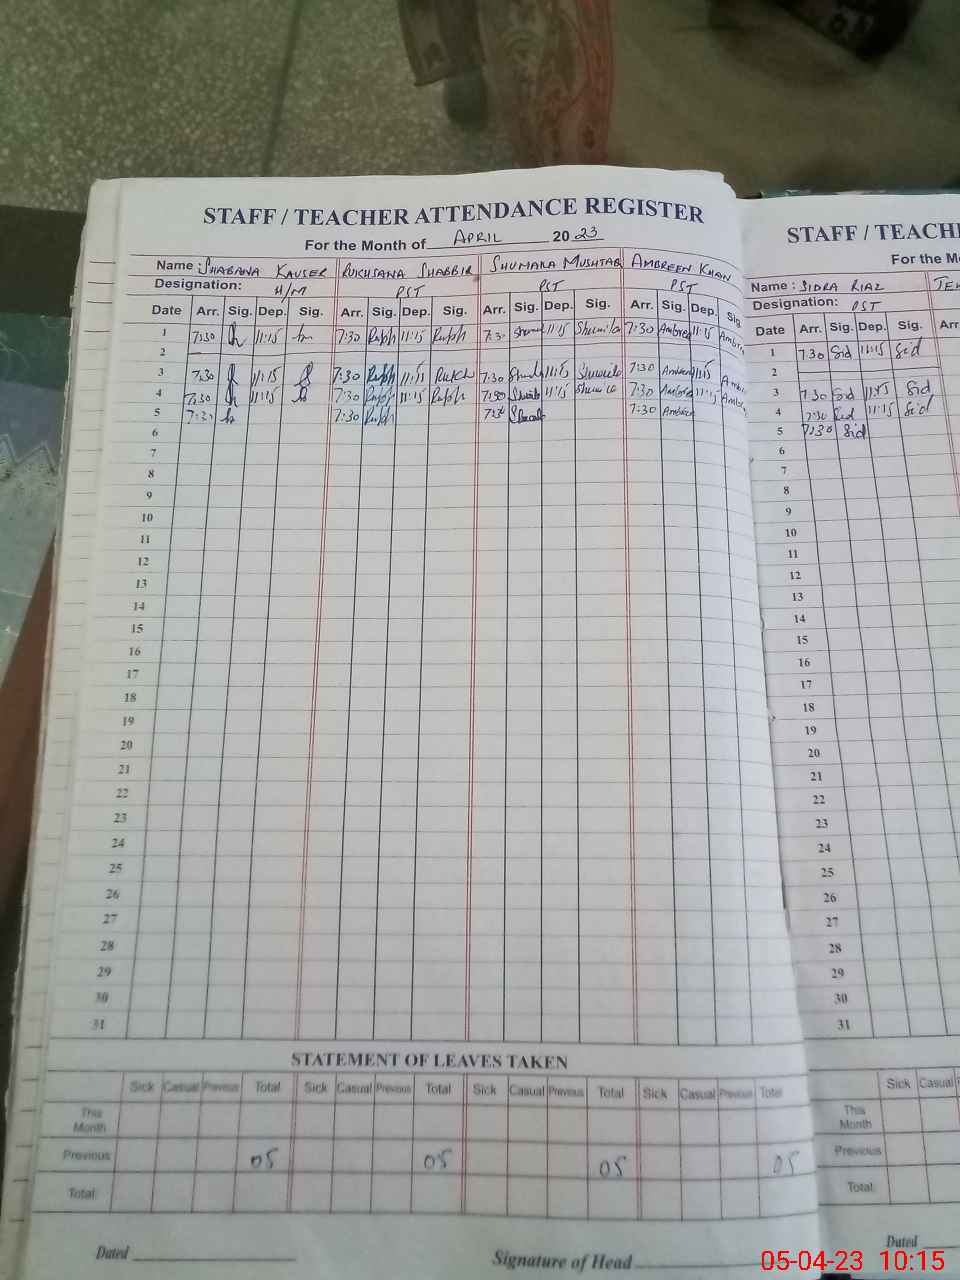 STAFF / TEACHER ATTENDANCE REGISTER
For the Month of APRIL 2023
Name : SHABANA KAUSER RUKHSANA SHABBIR SHUMAILA MUSHTAQ AMBREEN KHAN
Designation: H/M PST PST PST
Date Arr. Sig. Dep. Sig. Arr. Sig. Dep. Sig. Arr. Sig. Dep. Sig. Arr. Sig. Dep. Sig
1 7:30 11:15 7:30 11:15 7:30 11:15 7:30 11:15
2
3 7:30 11:15 7:30 11:15 7:30 11:15 7:30 11:15
4 7:30 11:15 7:30 11:15 7:30 11:15 7:30 11:15
5 7:30 7:30 7:30
6
7
8
9
10
11
12
13
14
15
16
17
18
19
20
21
22
23
24
25
26
27
28
29
30
31
STATEMENT OF LEAVES TAKEN
Sick Casual Previous Total Sick Casual Previous Total Sick Casual Previous Total Sick Casual Previous Total
This Month
Previous 05 05 05 05
Total
Dated Signature of Head
STAFF / TEACH
For the Mo
Name : SIDRA RIAZ
Designation: PST
Date Arr. Sig. Dep. Sig. Arr.
1 7:30 Sid 11:15 Sid
2
3 7:30 Sid 11:15 Sid
4 7:30 Sid 11:15 Sid
5 7:30 Sid
6
7
8
9
10
11
12
13
14
15
16
17
18
19
20
21
22
23
24
25
26
27
28
29
30
31
Sick Casual
This Month
Previous
Total
Dated
05-04-23 10:15